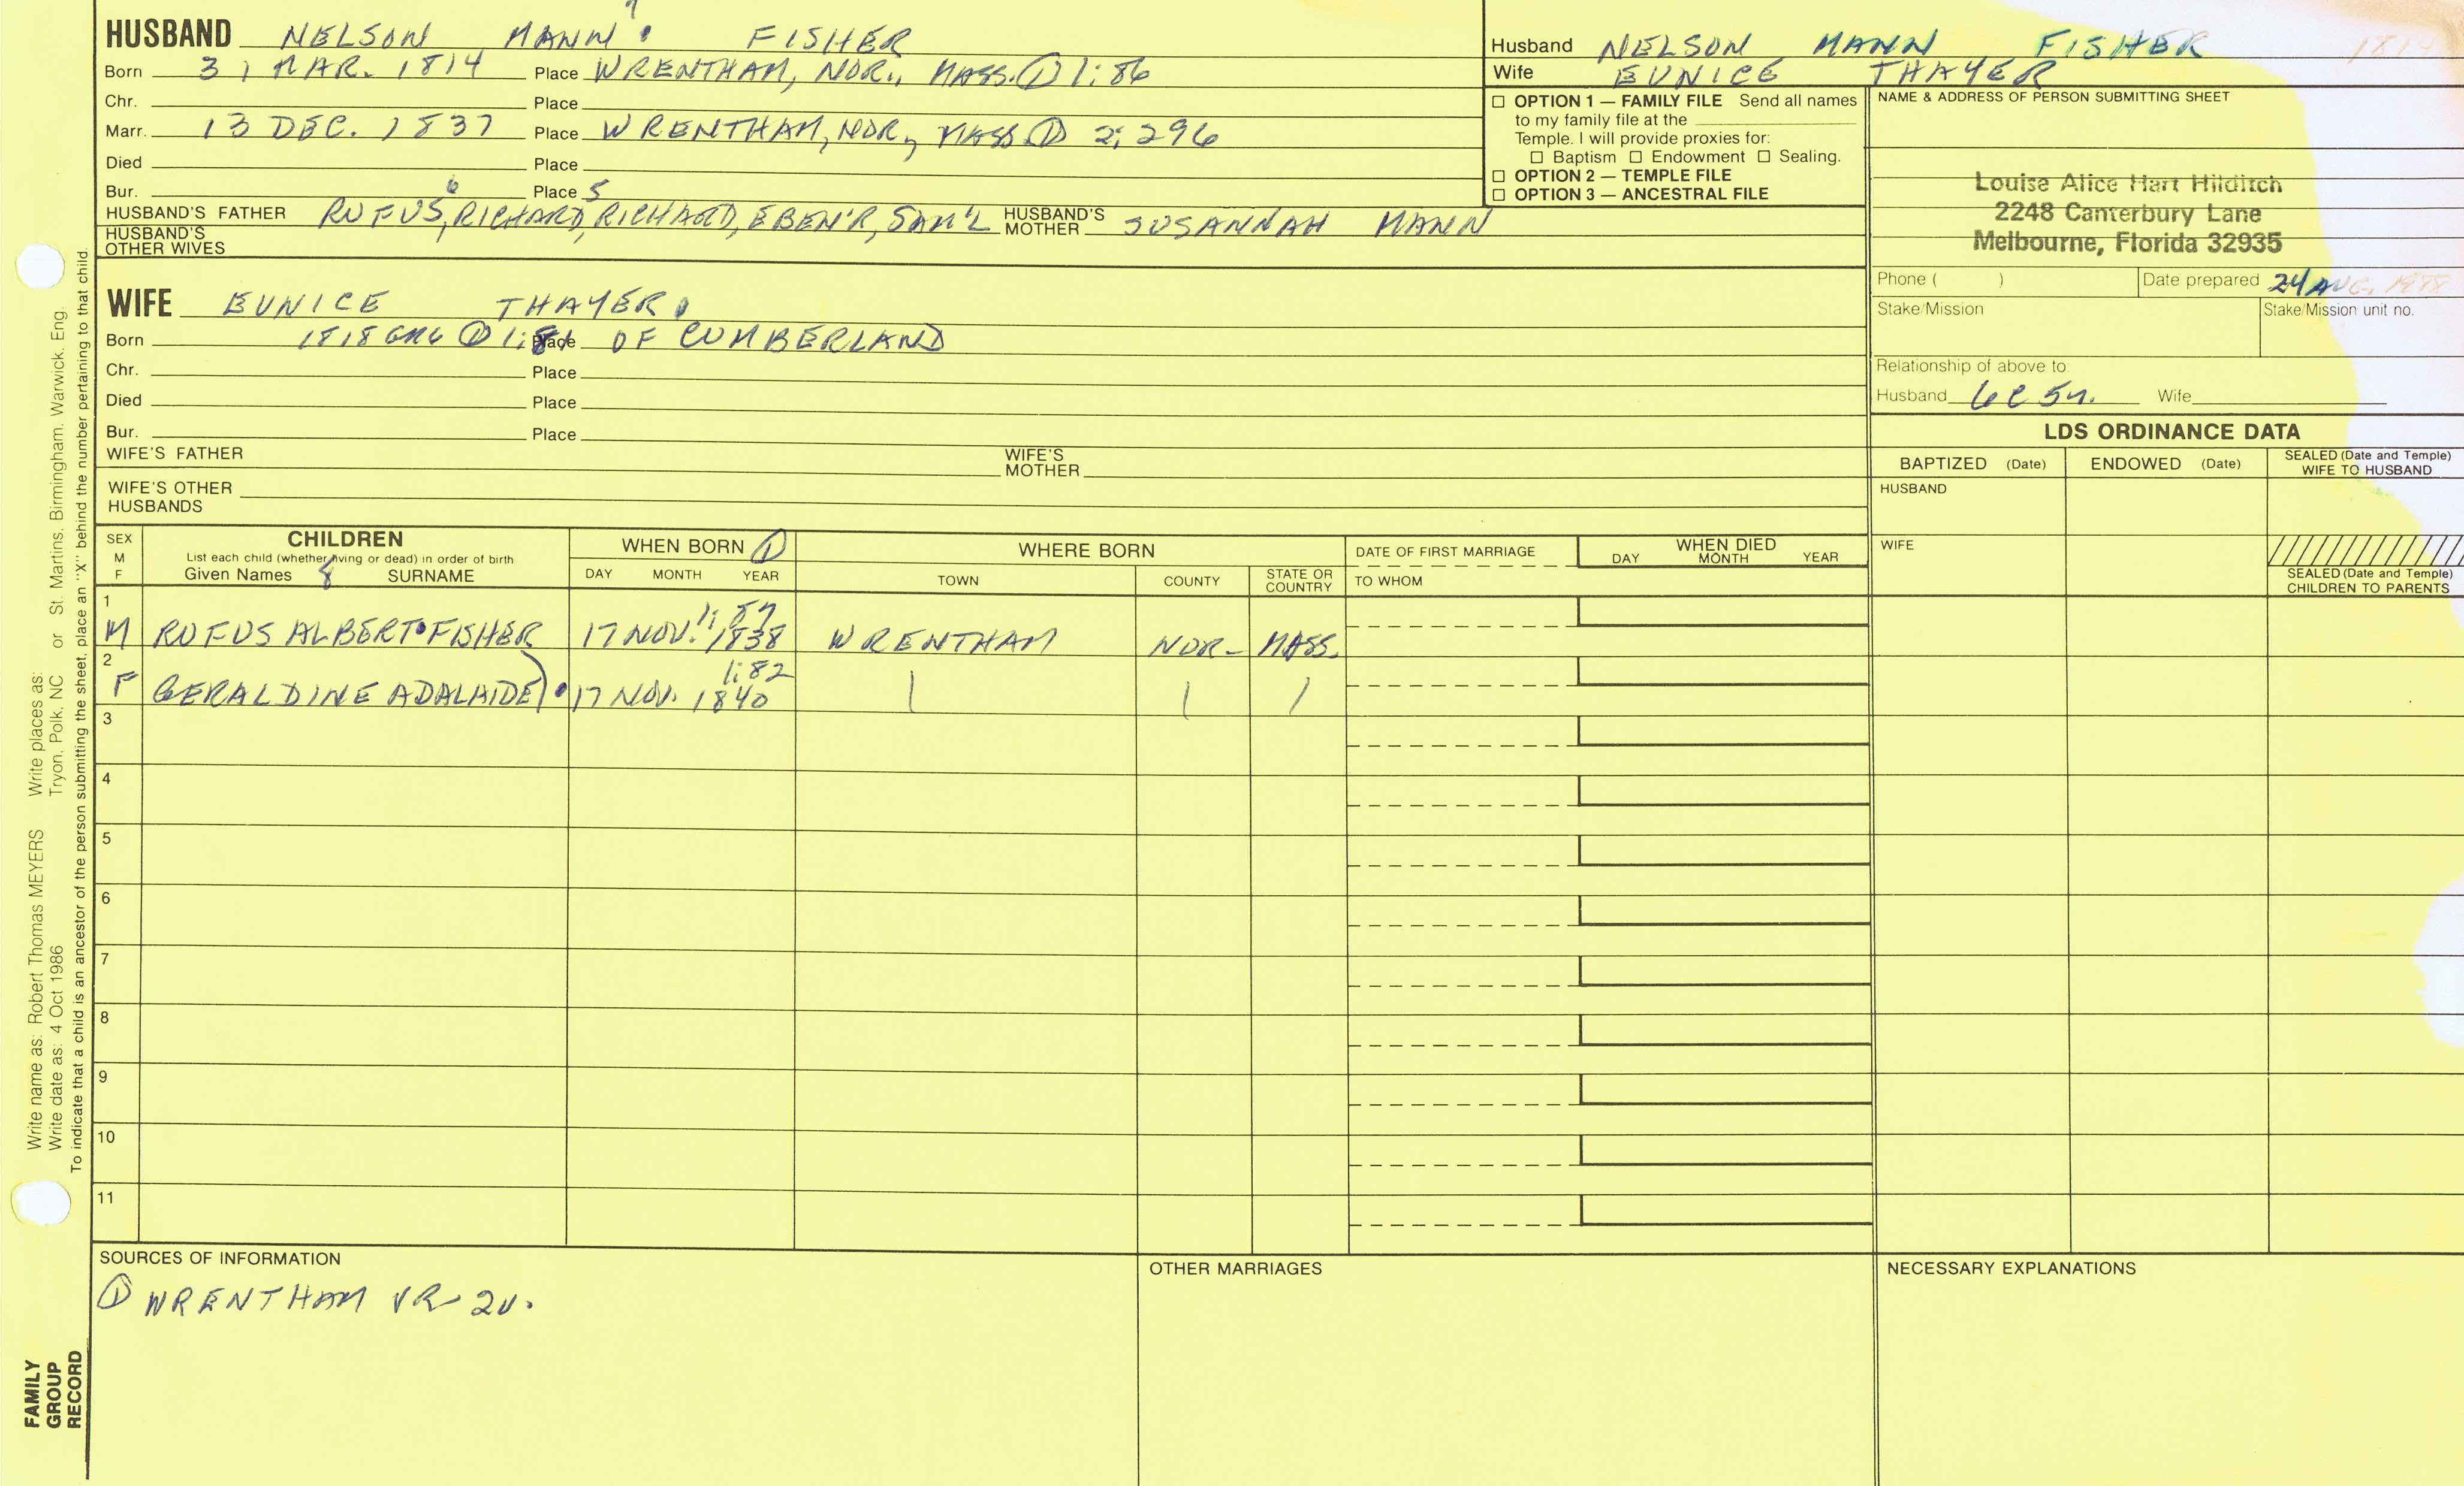 HUSBAND NELSON MANN FISHER
Born 31 MAR. 1814 Place WRENTHAM, NOR., MASS. ① 1:86
Chr. Place
Marr. 13 DEC. 1837 Place WRENTHAM, NOR., MASS ① 2:296
Died Place
Bur. Place
6 5
HUSBAND'S FATHER RUFUS, RICHARD, RICHARD, EBEN'R, SAM'L HUSBAND'S MOTHER SUSANNAH MANN
HUSBAND'S OTHER WIVES
Husband NELSON MANN FISHER 1814
Wife EUNICE THAYER
☐ OPTION 1 — FAMILY FILE Send all names
to my family file at the
Temple. I will provide proxies for:
☐ Baptism ☐ Endowment ☐ Sealing.
☐ OPTION 2 — TEMPLE FILE
☐ OPTION 3 — ANCESTRAL FILE
NAME & ADDRESS OF PERSON SUBMITTING SHEET
Louise Alice Hart Hilditch
2248 Canterbury Lane
Melbourne, Florida 32935
Phone ( ) Date prepared 24 AUG. 1988
Stake/Mission Stake/Mission unit no.
Relationship of above to:
Husband 6C5R. Wife
WIFE EUNICE THAYER
Born 1818 ① Place OF CUMBERLAND
Chr. Place
Died Place
Bur. Place
WIFE'S FATHER WIFE'S MOTHER
WIFE'S OTHER HUSBANDS
LDS ORDINANCE DATA
BAPTIZED (Date) ENDOWED (Date) SEALED (Date and Temple) WIFE TO HUSBAND
HUSBAND
WIFE
SEALED (Date and Temple) CHILDREN TO PARENTS
SEX M F
CHILDREN
List each child (whether living or dead) in order of birth
Given Names SURNAME
WHEN BORN ①
DAY MONTH YEAR
WHERE BORN
TOWN COUNTY STATE OR COUNTRY
DATE OF FIRST MARRIAGE
TO WHOM
WHEN DIED
DAY MONTH YEAR
1
1:87
M RUFUS ALBERT FISHER 17 NOV. 1838 WRENTHAM NOR- MASS.
2
1:82
F GERALDINE ADALAIDE 17 NOV. 1840
3
4
5
6
7
8
9
10
11
SOURCES OF INFORMATION
① WRENTHAM VR- 2V.
OTHER MARRIAGES
NECESSARY EXPLANATIONS
Write name as: Robert Thomas MEYERS Write places as:
Write date as: 4 Oct 1986 Tryon, Polk, NC or St. Martins, Birmingham, Warwick, Eng.
To indicate that a child is an ancestor of the person submitting the sheet, place an "X" behind the number pertaining to that child.
FAMILY
GROUP
RECORD